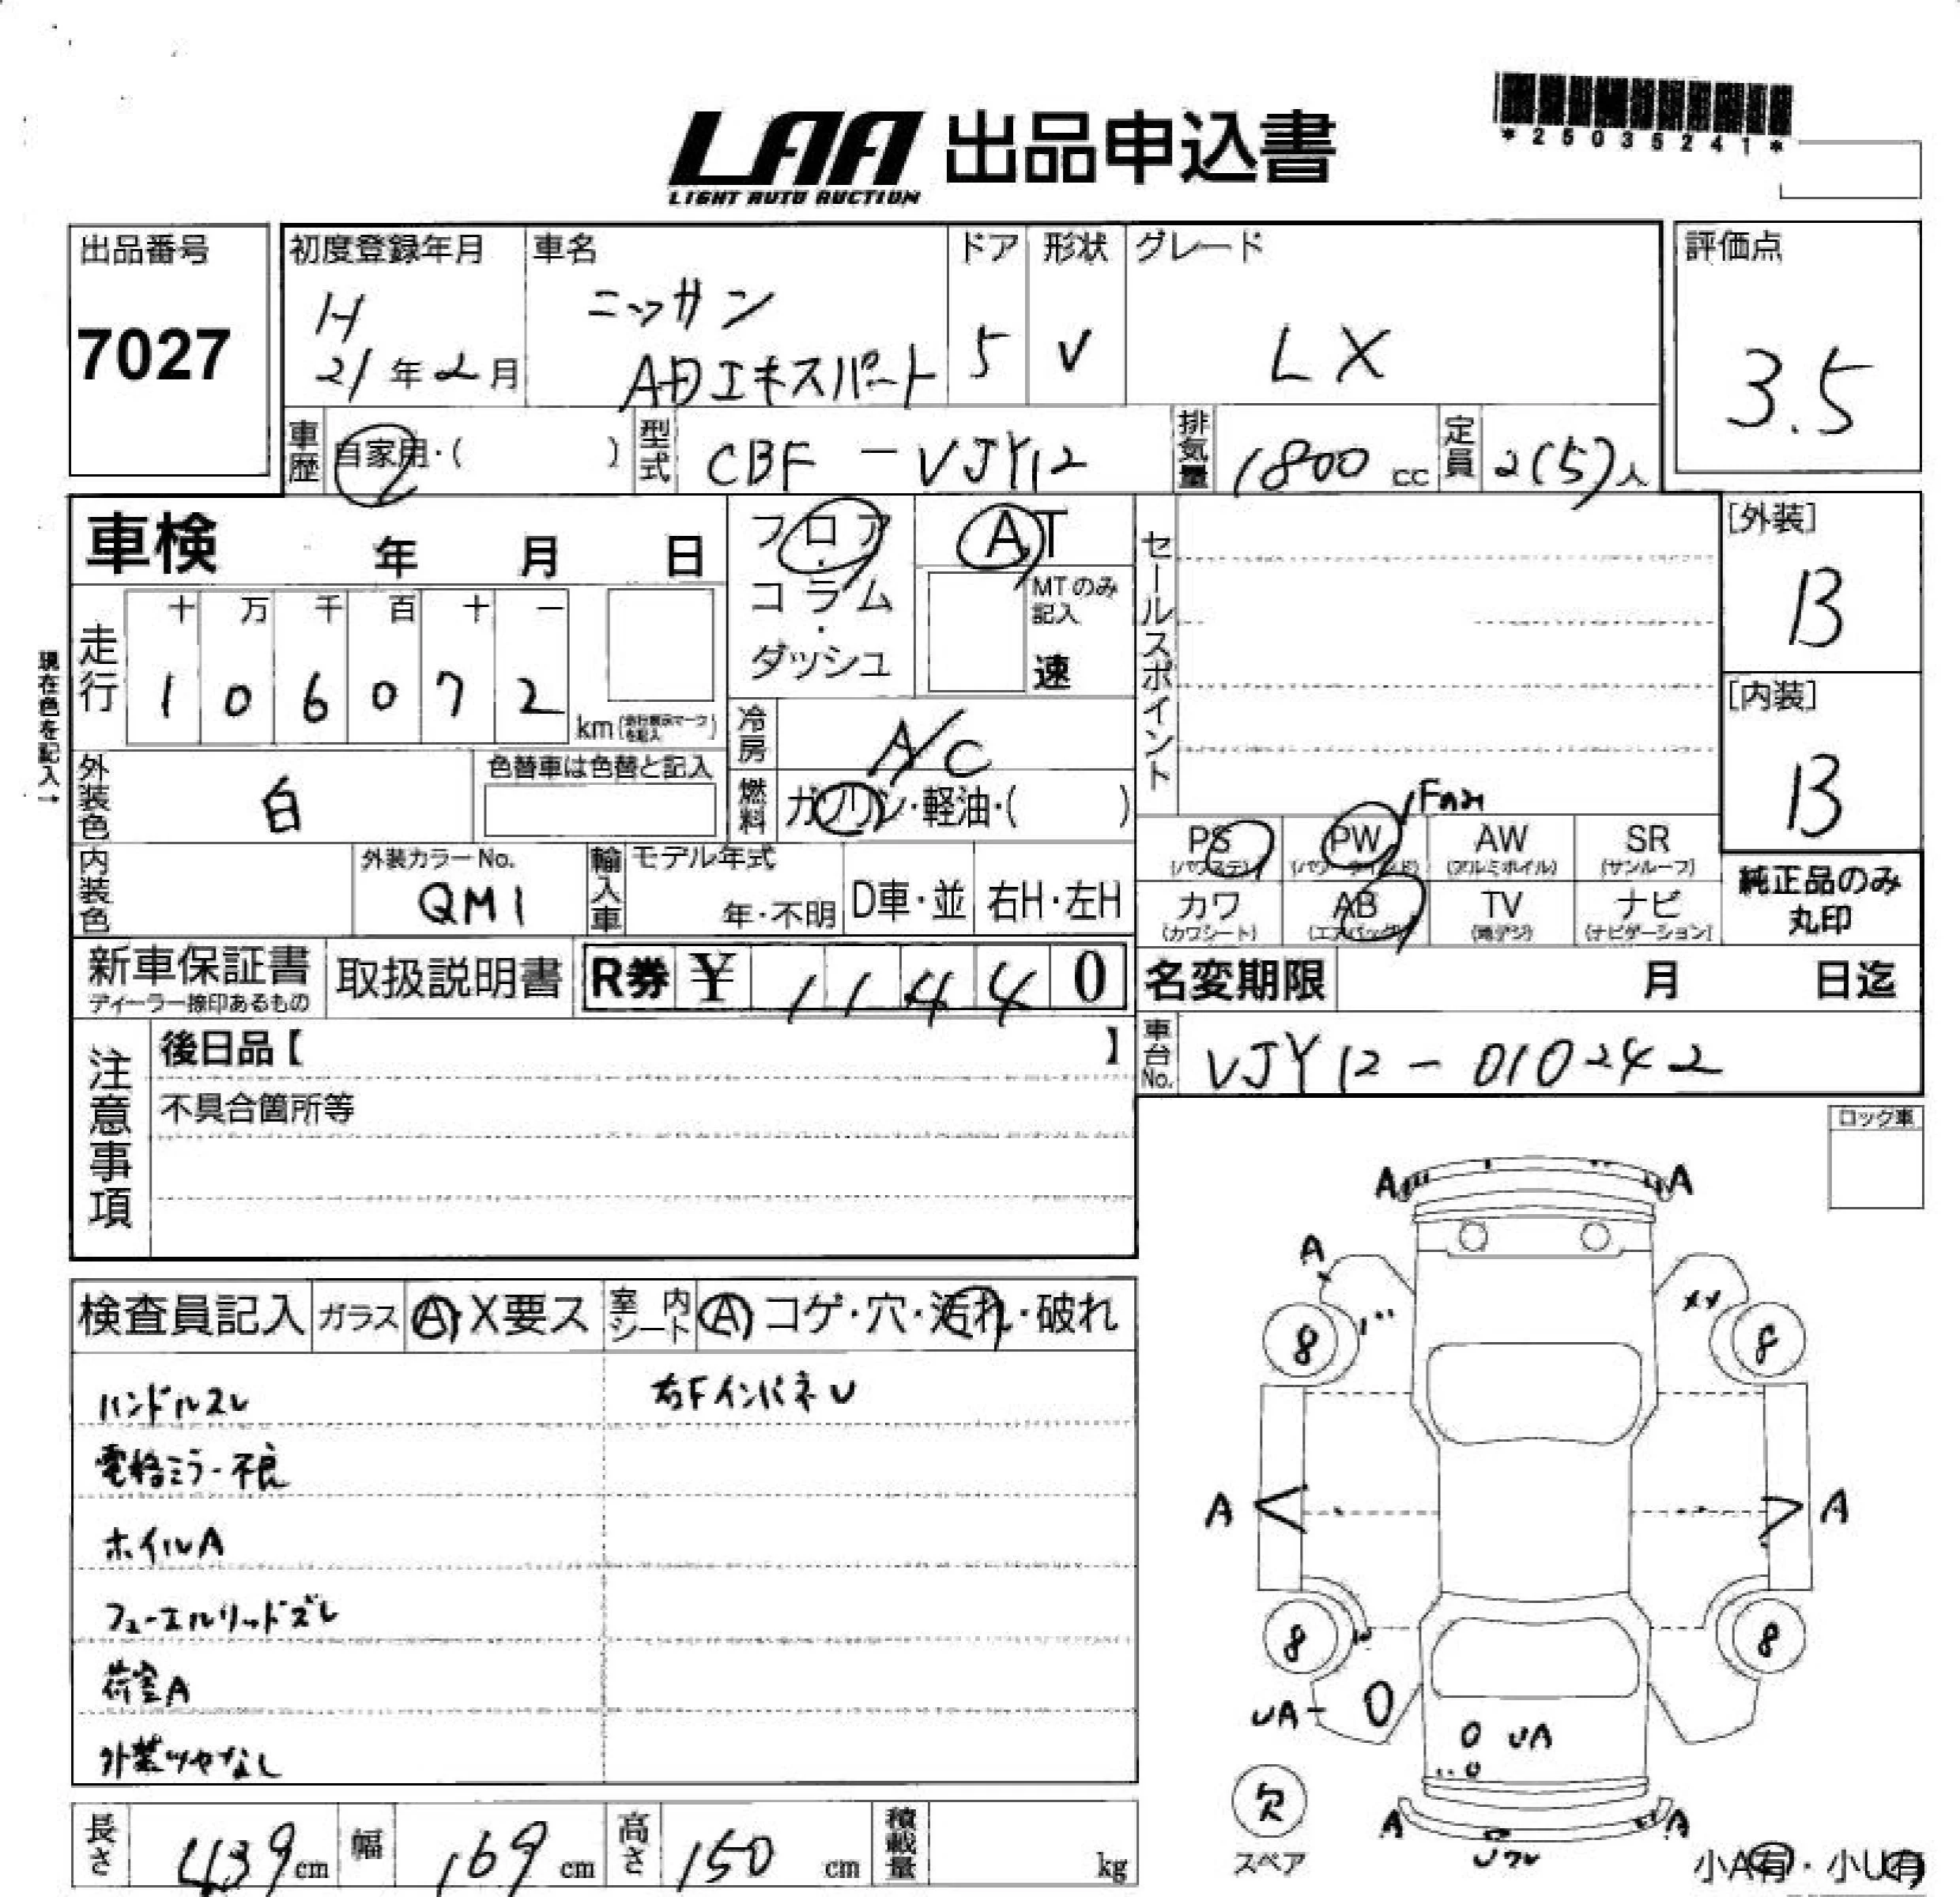 LAA 出品申込書
LIGHT AUTO AUCTION
*25035241*
出品番号
7027
初度登録年月
H
21年2月
車名
ニッサン
ADエキスパート
ドア
5
形状
V
グレード
LX
評価点
3.5
車歴
自家用・( )
型式
CBF-VJY12
排気量
1800 cc
定員
2(5)人
車検 年 月 日
フロア・コラム・ダッシュ
AT
MTのみ記入
速
セールスポイント
[外装]
B
[内装]
B
現在色を記入→
走行
十 万 千 百 十 一
1 0 6 0 7 2
km(走行表示マークを記入)
冷房
A/C
外装色
白
色替車は色替と記入
燃料
ガソリン・軽油・( )
PS
(パワステ)
PW
(パワーウインド)
AW
(アルミホイル)
SR
(サンルーフ)
内装色
外装カラーNo.
QM1
輸入車
モデル年式
年・不明
D車・並
右H・左H
カワ
(カワシート)
AB
(エアバッグ)
TV
(地デジ)
ナビ
(ナビゲーション)
純正品のみ
丸印
新車保証書
ディーラー捺印あるもの
取扱説明書
R券 ¥ 11440
名変期限 月 日迄
注意事項
後日品【 】
不具合箇所等
車台No.
VJY12-010242
ロック車
検査員記入
ガラス
A・X要ス
室内シート
A コゲ・穴・汚れ・破れ
ハンドルスレ
右FインパネU
電格ミラー不良
ホイルA
フューエルリッドズレ
荷室A
外装ツヤなし
A A
A
8 8
A A
8 8
UA
UA
A A
欠
スペア
小A有・小U有
長さ
439cm
幅
169cm
高さ
150cm
積載量
kg